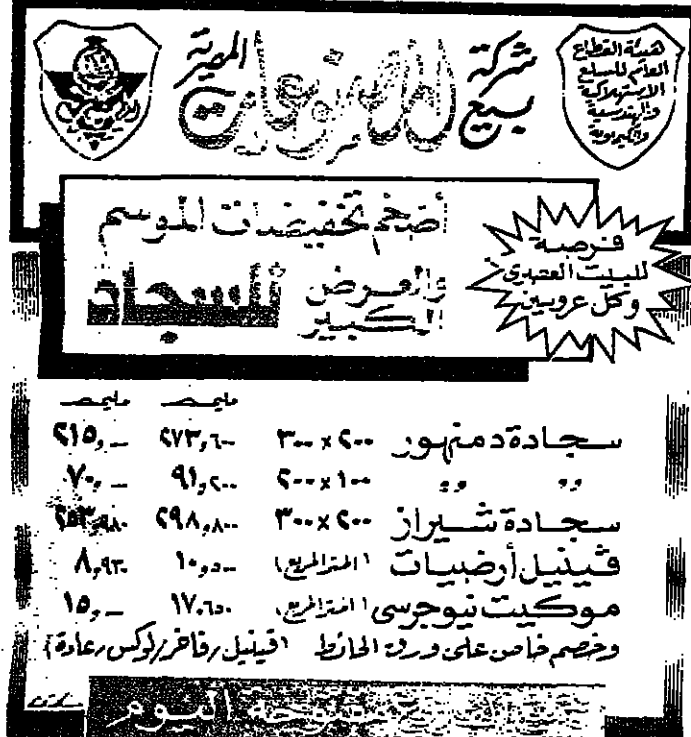 هيئة القطاع
العام للسلع
الاستهلاكية
والهندسية
والكيماوية
شركة
بيع المصنوعات المصرية
أضخم تخفيضات الموسم
والعرض الكبير للسجاد
فرصة
للبيت العصرى
وكل عروسين
مليمـ مليمـ
سجادة دمنهور ٢٠٠ × ٣٠٠ ٢٧٣,٦٠٠ ٢١٥,ــ
〃 〃 ١٠٠ × ٢٠٠ ٩١,٢٠٠ ٧٠,ــ
سجادة شيراز ٢٠٠ × ٣٠٠ ٢٩٨,٨٠٠ ٢٥٣,٩٨٠
ڤينيل أرضيات (المتر المربع) ١٠,٥٠٠ ٨,٩٣٠
موكيت نيوجرسى (المتر المربع) ١٧,٦٥٠ ١٥,ــ
وخصم خاص على ورق الحائط (ڤينيل/فاخر/لوكس/عادة)
اليوم